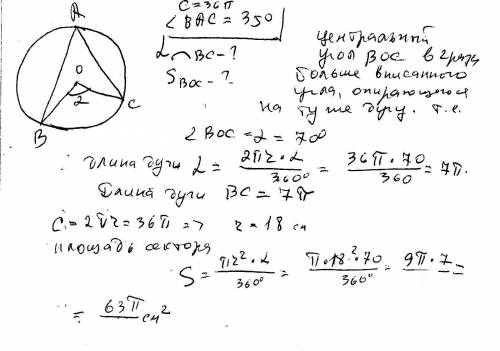 C = 36π
∠ BAC = 350
L ⌢ BC - ?
S BOC - ?
A
O
2
B
C
центральный
угол BOC в 2 раза
больше вписанного
угла, опирающегося
на ту же дугу. т.е.
∠ BOC = α = 70°
длина дуги L = 2πr · α / 360° = 36π · 70 / 360 = 7π.
Длина дуги BC = 7π
C = 2πr = 36π => r = 18 см
площадь сектора
S = πr² · α / 360° = π · 18² · 70 / 360° = 9π · 7 =
= 63π см²